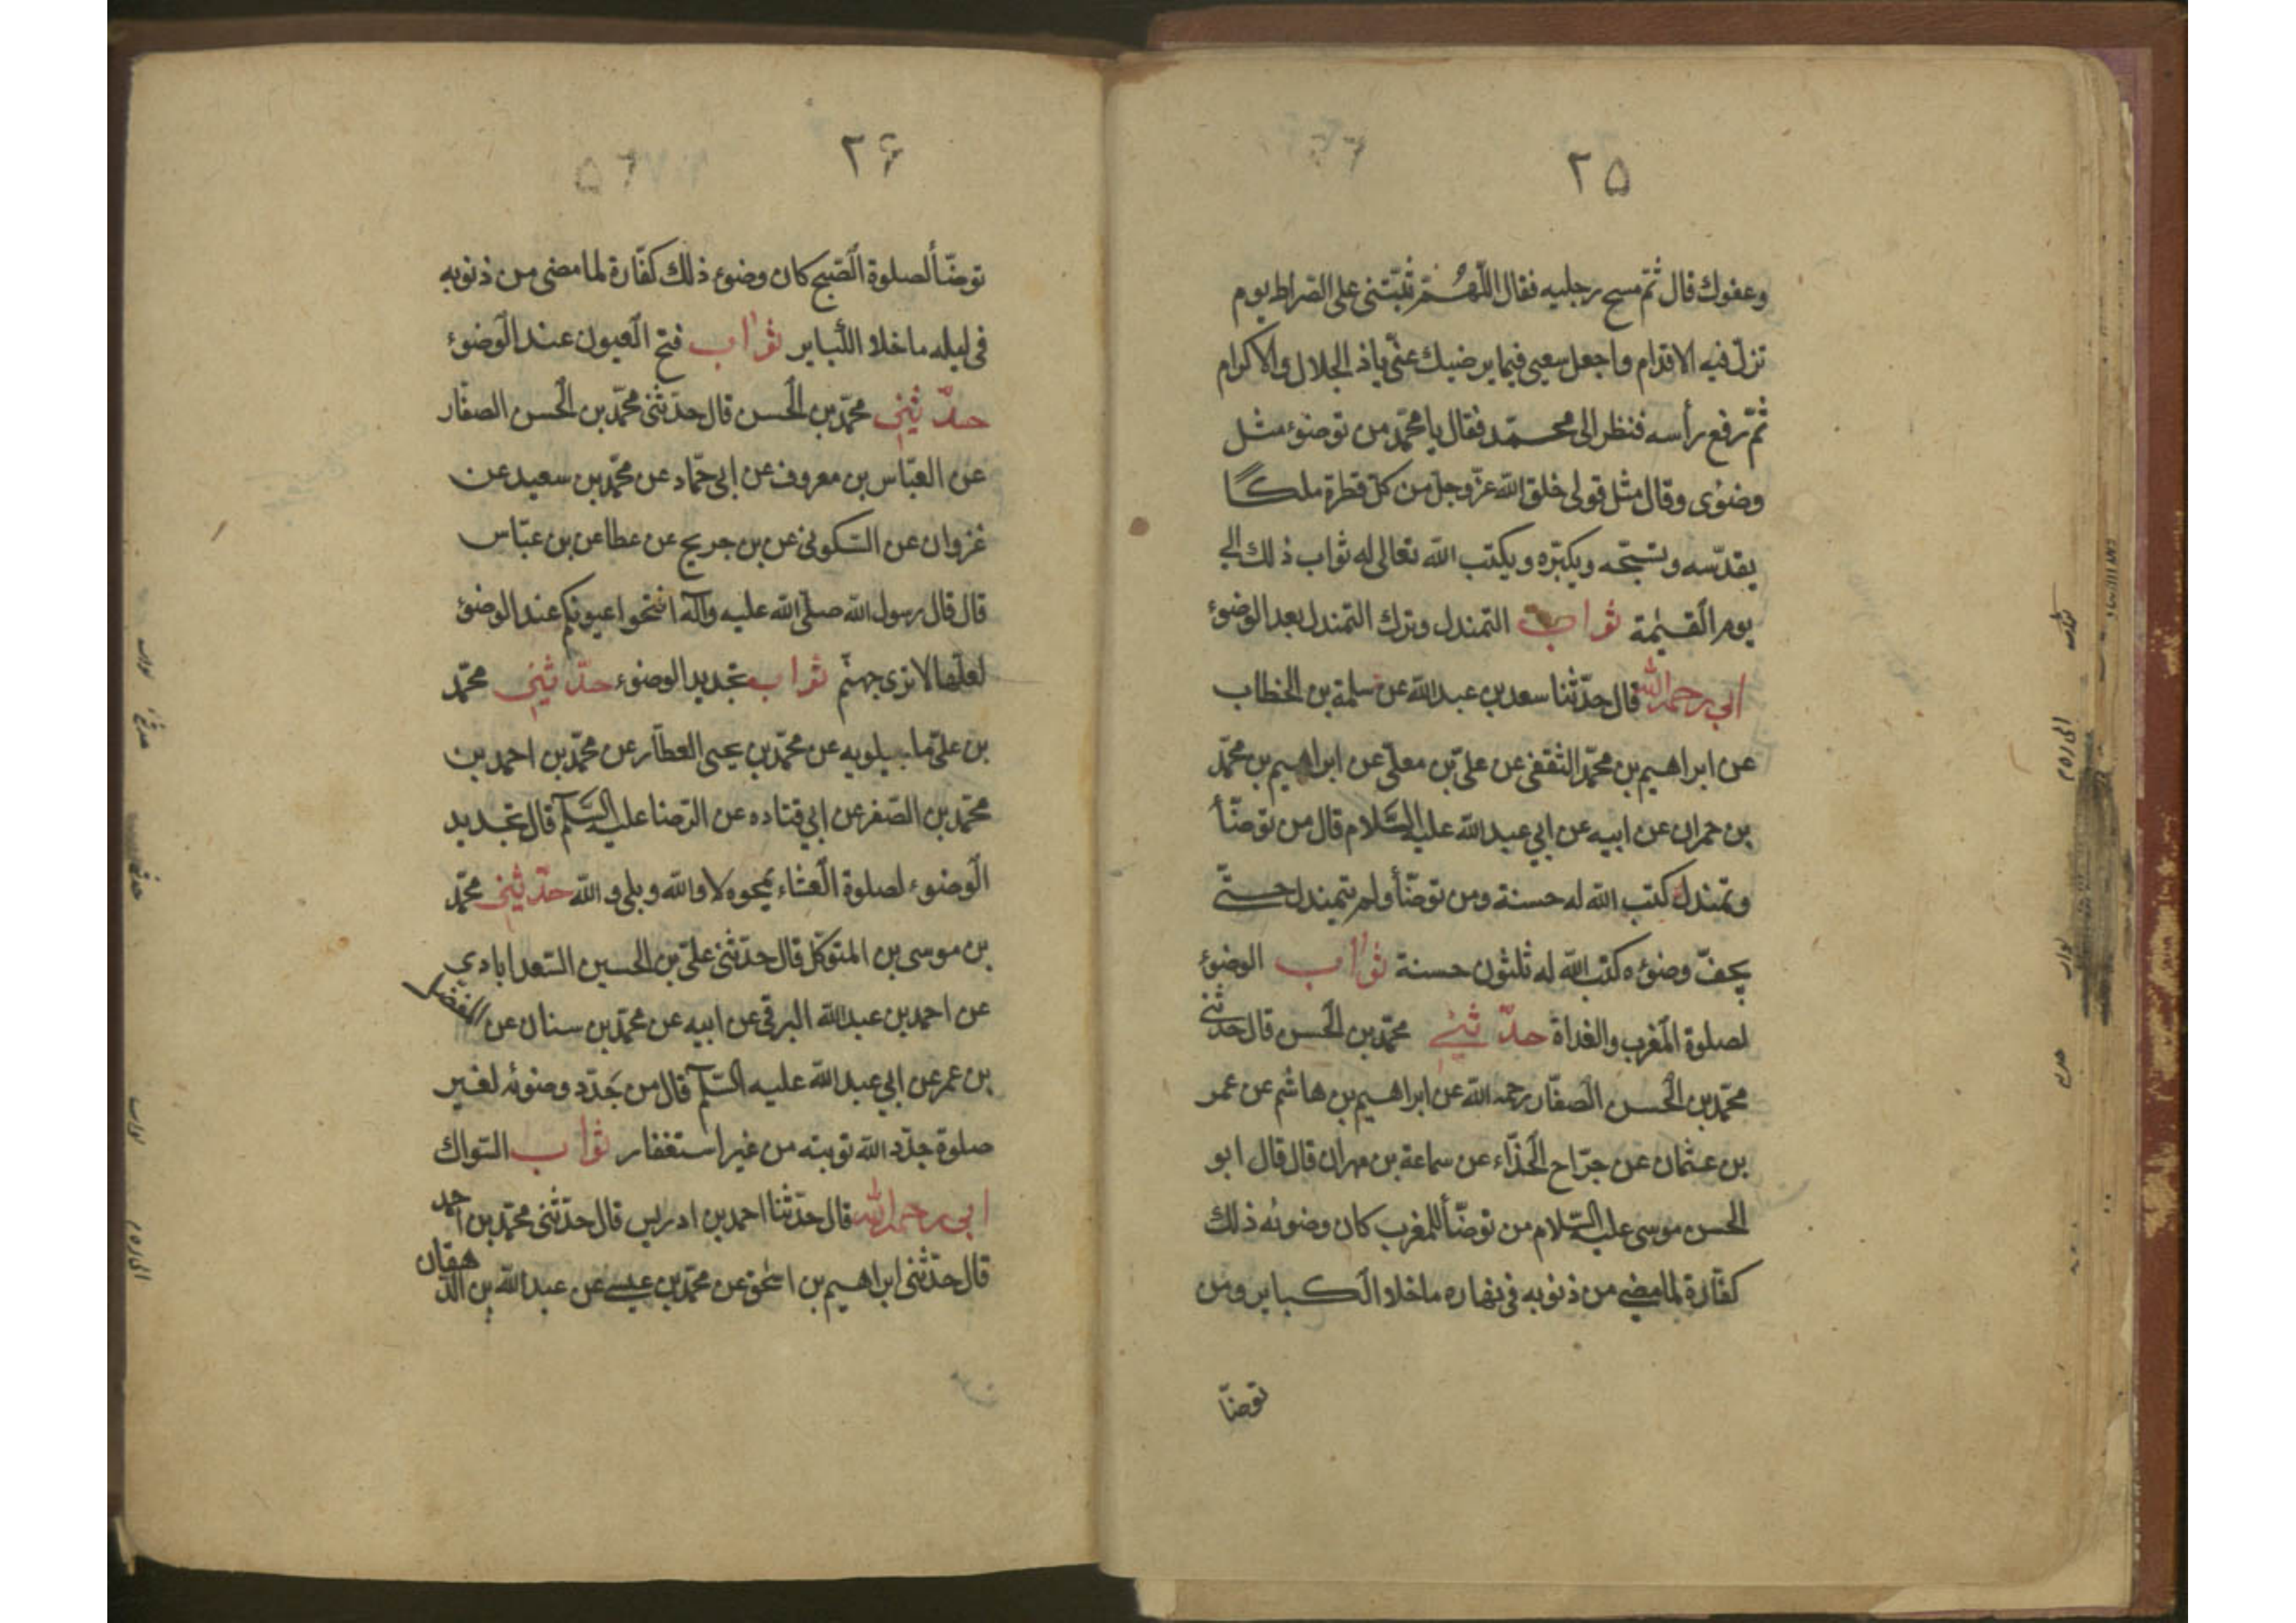 ٢٥
وعفوك قال ثمّ مسح رجليه فقال اللّهُمّ ثبّتنى على الصراط يوم
تزلّ فيه الاقدام واجعل سعيى فيما يرضيك عنّى ياذ الجلال والاكرام
ثمّ رفع رأسه فنظر الى محمّد فقال يا محمّد من توضوء مثل
وضوئى وقال مثل قولى خلق الله عزّ وجلّ من كلّ قطرة ملكًا
يقدّسه وتسبّحه ويكبّره ويكتب الله تعالى له ثواب ذلك الى
يوم القيٰمة ثواب التمندل وترك التمندل بعد الوضوء
ابي رحمه الله قال حدّثنا سعد بن عبدالله عن سلمة بن الخطاب
عن ابراهيم بن محمّد الثقفى عن علىّ بن معلّى عن ابراهيم بن محمّد
بن حمران عن ابيه عن ابي عبدالله عليه السّلام قال من توضّأ
وتمندل كتب الله له حسنة ومن توضّأ ولم يتمندل حتّى
يجفّ وضوءه كتب الله له ثلثون حسنة ثواب الوضوء
لصلوة المغرب والغداة حدّثني محمّد بن الحسن قال حدثنى
محمّد بن الحسن الصفّار رحمه الله عن ابراهيم بن هاشم عن عمر
بن عثمان عن جرّاح الحذّاء عن سماعة بن مهران قال قال ابو
الحسن موسى عليه السّلام من توضّأ للمغرب كان وضوئه ذلك
كفّارة لما مضى من ذنوبه فى نهاره ما خلا الكباير ومن
توضّا
٢۶
توضّأ لصلوة الصّبح كان وضوء ذلك كفّارة لما مضى من ذنوبه
فى ليله ما خلا الكباير ثواب فتح العيون عند الوضوء
حدّثني محمّد بن الحسن قال حدّثنى محمّد بن الحسن الصفّار
عن العبّاس بن معروف عن ابى حمّاد عن محمّد بن سعيد عن
غزوان عن السّكونى عن بن جريح عن عطا عن بن عبّاس
قال قال رسول الله صلّى الله عليه وآله افتحوا عيونكم عند الوضوء
لعلّها لا ترى جهنّم ثواب تجديد الوضوء حدّثني محمّد
بن علىّ ماجيلويه عن محمّد بن يحيى العطّار عن محمّد بن احمد بن
محمّد بن الصّفر عن ابي قتاده عن الرّضا عليه السّلم قال تجديد
الوضوء لصلوة العشاء يمحوه لا والله وبلى والله حدّثني محمّد
بن موسى بن المتوكّل قال حدّثنى علىّ بن الحسين السّعدابادي
عن احمد بن عبدالله البرقى عن ابيه عن محمّد بن سنان عن المفضل
بن عمر عن ابي عبدالله عليه السّلم قال من جَدّد وضوئه لغير
صلوة جدّد الله توبته من غير استغفار ثواب السّواك
ابي رحمه الله قال حدّثنا احمد بن ادريس قال حدّثنى محمّد بن احمد
قال حدّثنى ابراهيم بن اسحٰق عن محمّد بن عيسى عن عبدالله بن الدهقان